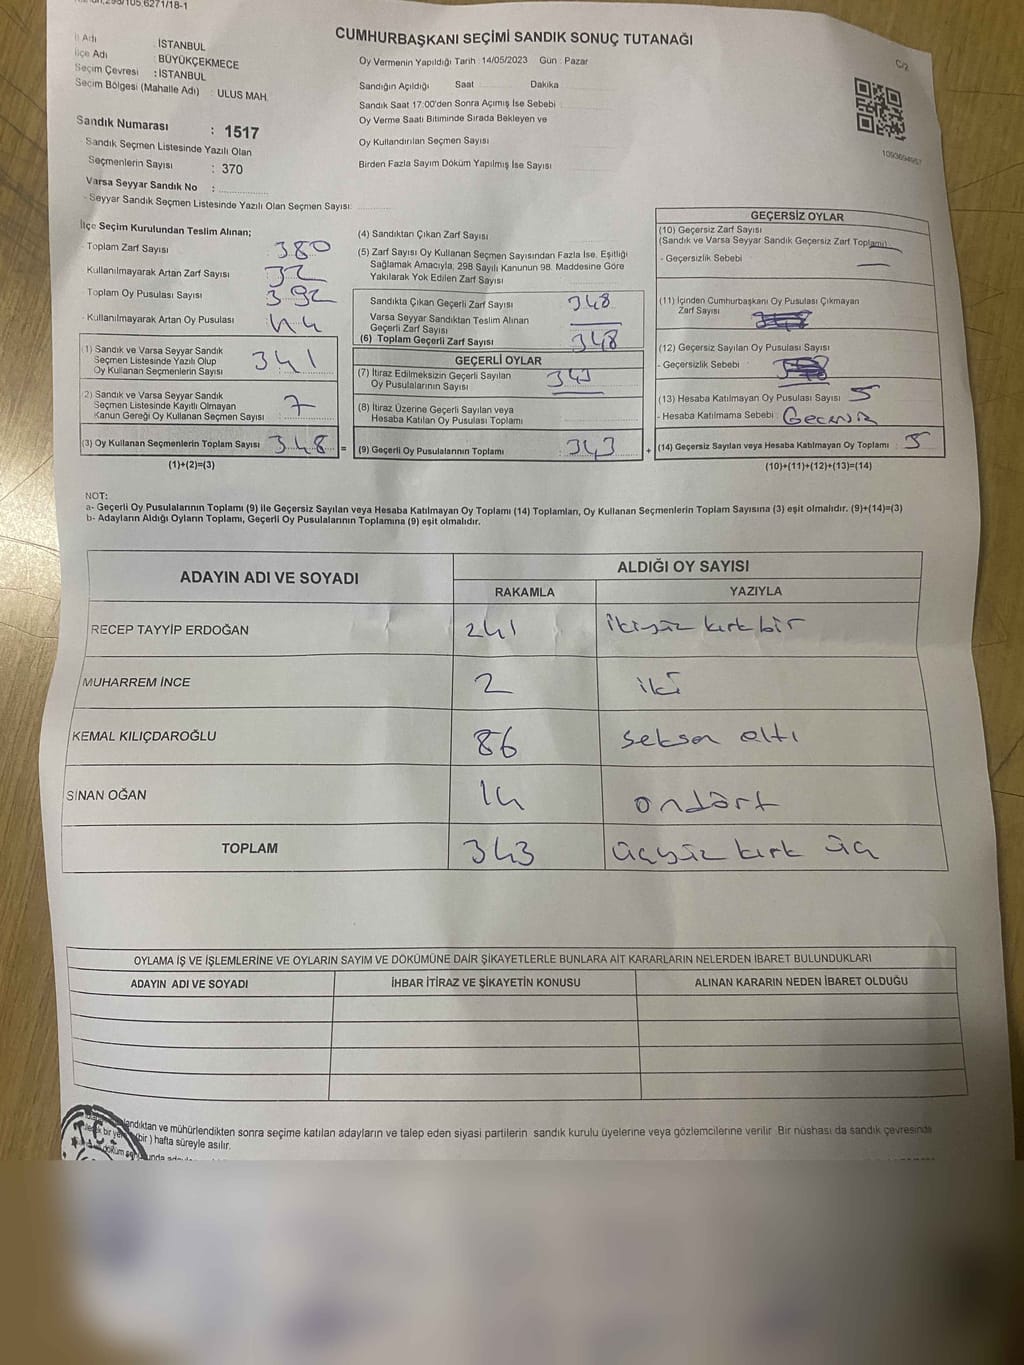 CUMHURBAŞKANI SEÇİMİ SANDIK SONUÇ TUTANAĞI
C/2
İl Adı : İSTANBUL
İlçe Adı : BÜYÜKÇEKMECE
Seçim Çevresi : İSTANBUL
Seçim Bölgesi (Mahalle Adı) : ULUS MAH.
Sandık Numarası : 1517
Sandık Seçmen Listesinde Yazılı Olan
Seçmenlerin Sayısı : 370
Varsa Seyyar Sandık No :
- Seyyar Sandık Seçmen Listesinde Yazılı Olan Seçmen Sayısı:
Oy Vermenin Yapıldığı Tarih : 14/05/2023 Gün : Pazar
Sandığın Açıldığı Saat Dakika
Sandık Saat 17:00'den Sonra Açımış İse Sebebi
Oy Verme Saati Bitiminde Sırada Bekleyen ve
Oy Kullandırılan Seçmen Sayısı
Birden Fazla Sayım Döküm Yapılmış İse Sayısı
1093694957
İlçe Seçim Kurulundan Teslim Alınan;
- Toplam Zarf Sayısı 380
Kullanılmayarak Artan Zarf Sayısı 32
Toplam Oy Pusulası Sayısı 392
- Kullanılmayarak Artan Oy Pusulası 44
(1) Sandık ve Varsa Seyyar Sandık
Seçmen Listesinde Yazılı Olup
Oy Kullanan Seçmenlerin Sayısı 341
2) Sandık ve Varsa Seyyar Sandık
Seçmen Listesinde Kayıtlı Olmayan
Kanun Gereği Oy Kullanan Seçmen Sayısı 7
(3) Oy Kullanan Seçmenlerin Toplam Sayısı 348 =
(1)+(2)=(3)
(4) Sandıktan Çıkan Zarf Sayısı
(5) Zarf Sayısı Oy Kullanan Seçmen Sayısından Fazla İse, Eşitliği
Sağlamak Amacıyla, 298 Sayılı Kanunun 98. Maddesine Göre
Yakılarak Yok Edilen Zarf Sayısı
Sandıkta Çıkan Geçerli Zarf Sayısı 348
Varsa Seyyar Sandıktan Teslim Alınan
Geçerli Zarf Sayısı
(6) Toplam Geçerli Zarf Sayısı 348
GEÇERLİ OYLAR
(7) İtiraz Edilmeksizin Geçerli Sayılan
Oy Pusulalarının Sayısı 343
(8) İtiraz Üzerine Geçerli Sayılan veya
Hesaba Katılan Oy Pusulası Toplamı
(9) Geçerli Oy Pusulalarının Toplamı 343 +
GEÇERSİZ OYLAR
(10) Geçersiz Zarf Sayısı
(Sandık ve Varsa Seyyar Sandık Geçersiz Zarf Toplamı)
- Geçersizlik Sebebi
(11) İçinden Cumhurbaşkanı Oy Pusulası Çıkmayan
Zarf Sayısı
(12) Geçersiz Sayılan Oy Pusulası Sayısı
- Geçersizlik Sebebi
(13) Hesaba Katılmayan Oy Pusulası Sayısı 5
- Hesaba Katılmama Sebebi Geçersiz
(14) Geçersiz Sayılan veya Hesaba Katılmayan Oy Toplamı 5
(10)+(11)+(12)+(13)=(14)
NOT:
a- Geçerli Oy Pusulalarının Toplamı (9) ile Geçersiz Sayılan veya Hesaba Katılmayan Oy Toplamı (14) Toplamları, Oy Kullanan Seçmenlerin Toplam Sayısına (3) eşit olmalıdır. (9)+(14)=(3)
b- Adayların Aldığı Oyların Toplamı, Geçerli Oy Pusulalarının Toplamına (9) eşit olmalıdır.
ADAYIN ADI VE SOYADI
ALDIĞI OY SAYISI
RAKAMLA YAZIYLA
RECEP TAYYİP ERDOĞAN 241 ikiyüz kırk bir
MUHARREM İNCE 2 iki
KEMAL KILIÇDAROĞLU 86 seksen altı
SİNAN OĞAN 14 ondört
TOPLAM 343 üçyüz kırk üç
OYLAMA İŞ VE İŞLEMLERİNE VE OYLARIN SAYIM VE DÖKÜMÜNE DAİR ŞİKAYETLERLE BUNLARA AİT KARARLARIN NELERDEN İBARET BULUNDUKLARI
ADAYIN ADI VE SOYADI İHBAR İTİRAZ VE ŞİKAYETİN KONUSU ALINAN KARARIN NEDEN İBARET OLDUĞU
landıktan ve mühürlendikten sonra seçime katılan adayların ve talep eden siyasi partilerin sandık kurulu üyelerine veya gözlemcilerine verilir Bir nüshası da sandık çevresinde
bir ) hafta süreyle asılır.